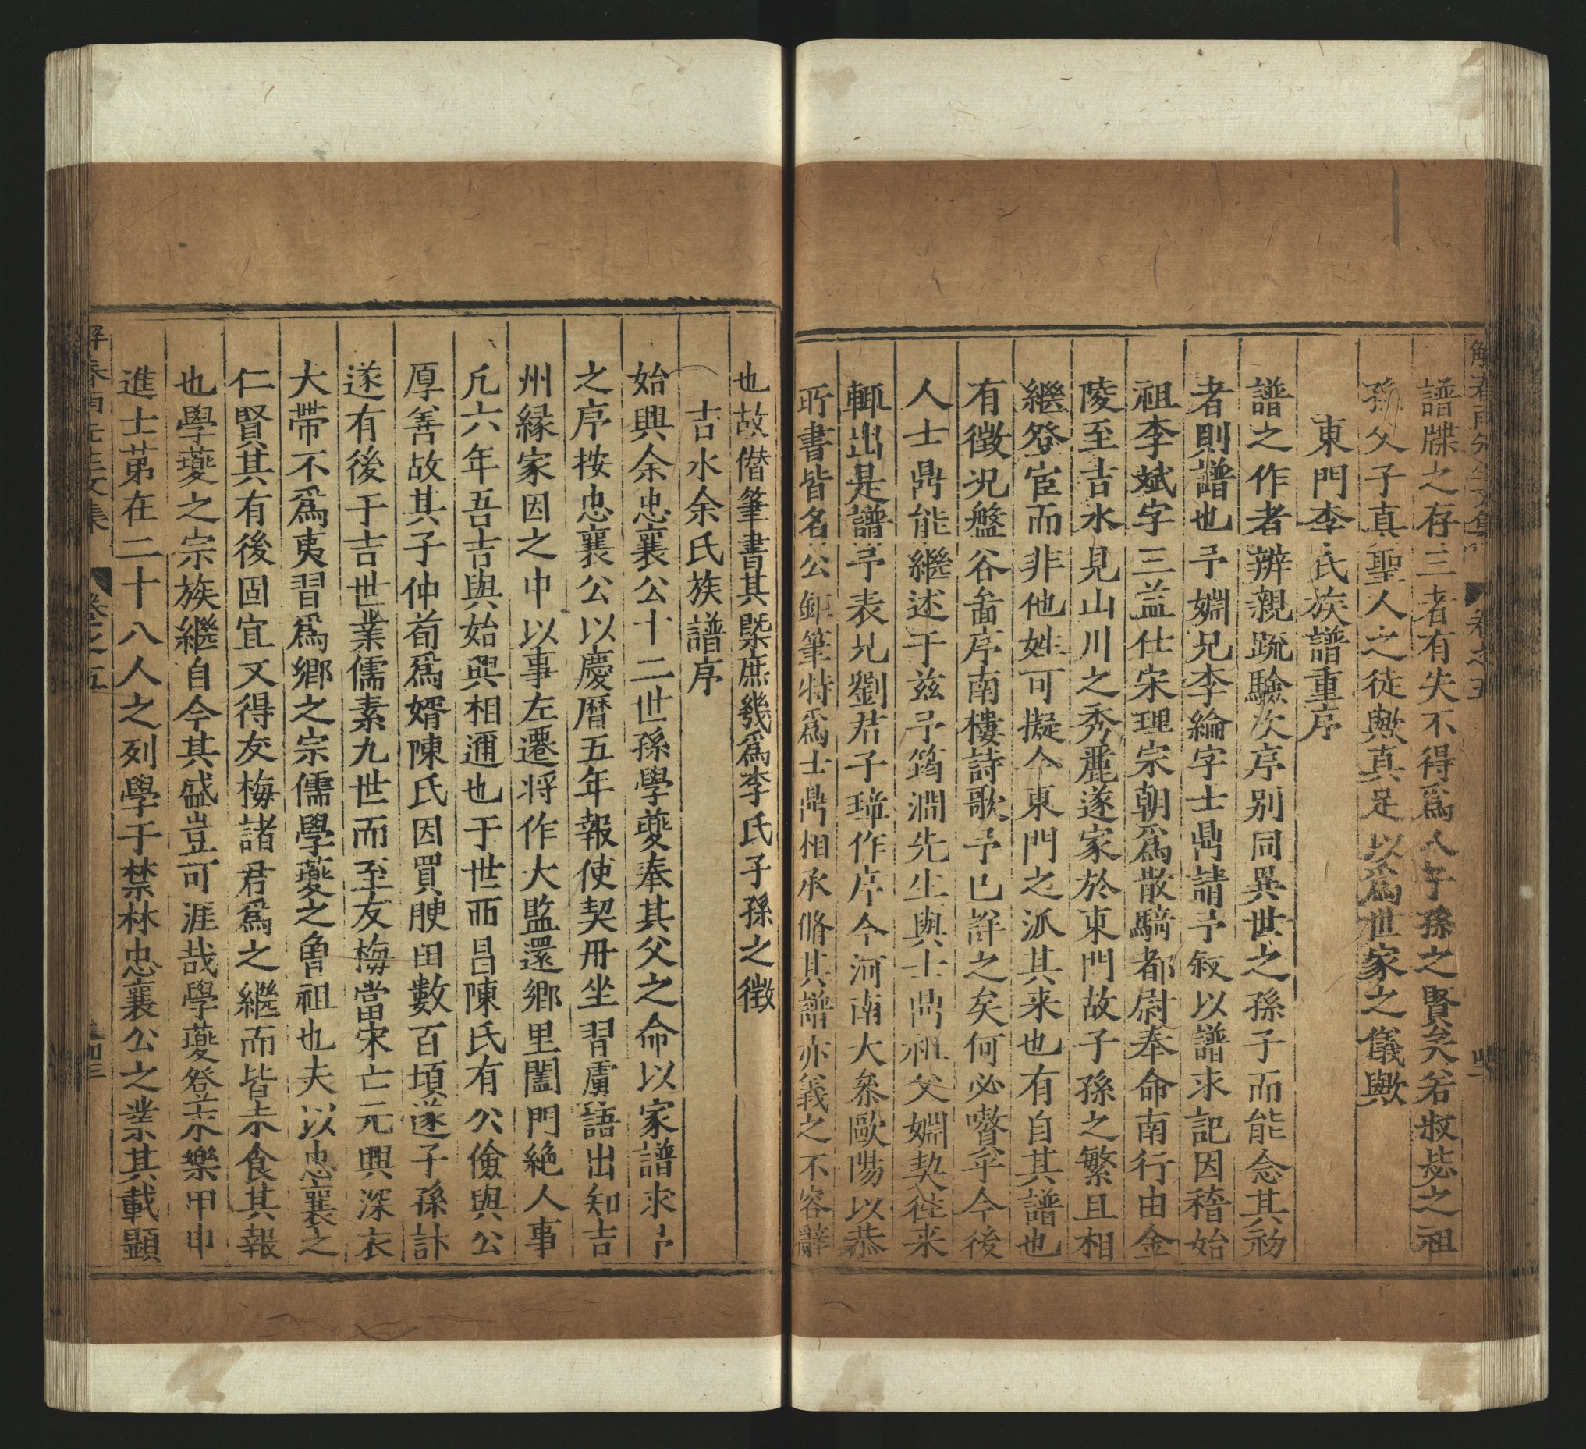 譜牒之存亡者有矣不得爲人子孫之賢矣若叔苾之祖
孫父子真聖人之徒歟真足以爲世家之儀歟
東門李氏族譜重序
譜之作者辨親疏驗次序别同異世之孫子而能念其初
者則譜也予婣兄李綸字士鼎請予叙以譜求記因稽始
祖李斌字三益仕宋理宗朝爲散騎都尉奉命南行由金
陵至吉水見山川之秀麗遂家於東門故子孫之繁且相
繼登宦而非他姓可擬今東門之派其来也有自其譜也
有徵况盤谷啚序南樓詩歌予已詳之矣何必贅乎今後
人士鼎能繼述于兹予筠澗先生與士鼎祖父婣契往来
輙出是譜予表兄劉君子璋作序今河南大叅歐陽以恭
所書皆名公鉅筆特爲士鼎相承脩其譜亦義之不容辭
也故僣筆書其槩庶幾爲李氏子孫之徵
吉水余氏族譜序
始興余忠襄公十二世孫學夔奉其父之命以家譜求予
之序按忠襄公以慶曆五年報使契丹坐習虜語出知吉
州緣家因之中以事左遷将作大監還鄉里闔門絶人事
凡六年吾吉與始興相邇也于世而昌陳氏有公儉與公
厚善故其子仲荀爲婿陳氏因買腴田數百頃遂子孫計
遂有後于吉世業儒素九世而至友梅當宋亡元興深衣
大帶不爲夷習爲鄉之宗儒學夔之魯祖也夫以忠襄之
仁賢其有後固宜又得友梅諸君爲之繼而皆未食其報
也學夔之宗族繼自今其盛豈可涯哉學夔登永樂甲申
進士第在二十八人之列學于禁林忠襄公之業其載顯
解春雨先生文集
卷之五